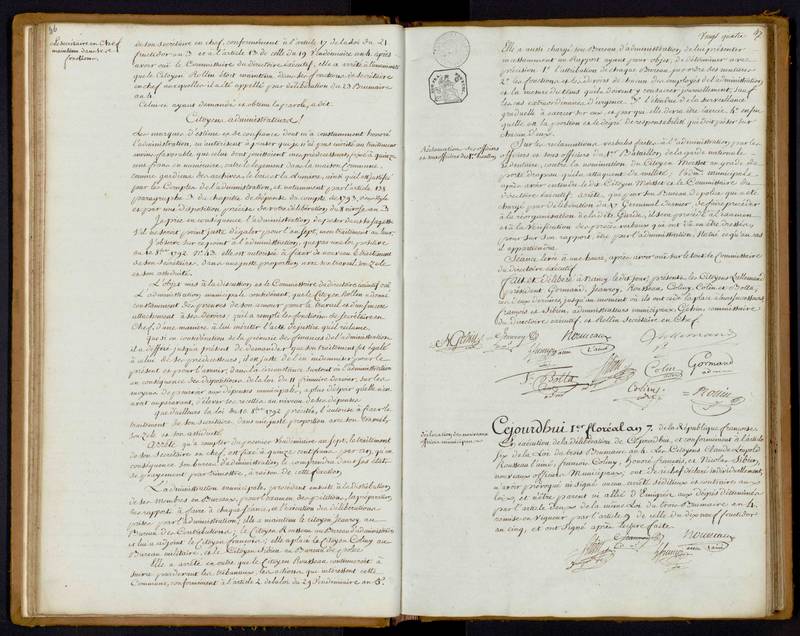 46
Le secrétaire en chef
maintenu dans ses
fonctions.
de son secrétaire en chef, conformément à l'article 17 de la loi du 21
fructidor an 3 et à l'article 13 de celle du 19 Vendémiaire an 4, après
avoir ouï le Commissaire du directoire Exécutif, elle a arrêté à l'unanimité
que le Citoyen Rollin étoit maintenu dans ses fonctions de secrétaire
en chef auxquelles il a été appelé par délibération du 23 Brumaire
an 4.
Celui-ci ayant demandé et obtenu la parole, a dit:
Citoyens administrateurs!
Les marques d'estime et de confiance dont m'a constamment honoré
l'administration, m'autorisent à penser que je n'ai pas mérité un traitement
moins favorable que celui dont jouissoient mes prédécesseurs, fixé à quinze
cent francs en numéraire, outre le logement dans la maison Commune
comme gardiens des archives, le bois et la lumière, ainsi qu'il est justifié
par les Comptes de l'administration, et notamment par l'article 128
paragraphe 3 du chapitre de dépense du compte de 1793,
et par une disposition précise de votre délibération du 8 nivôse an 3.
Je prie en conséquence l'administration, de peser dans sa sagesse
s'il ne seroit point juste d'égaler pour l'an sept, mon traitement au leur.
J'observe sur ce point à l'administration, que par une loi postérieure
du 10 7bre 1792 N°. 13. elle est autorisée à fixer de nouveau le traitement
de son secrétaire, dans une juste proportion avec son travail, son zèle
et son assiduité.
L'objet mis à la discussion, et le Commissaire du directoire exécutif ouï
L'administration municipale considérant, que le Citoyen Rollin a donné
constamment des preuves de son amour pour le travail et d'un sincère
attachement à ses devoirs; qu'il a rempli les fonctions de secrétaire en
Chef, d'une manière à lui mériter l'acte de justice qu'il réclame.
que si en considération de la pénurie des finances de l'administration
il a différé jusqu'à présent de demander que son traitement fut égalé
à celui de ses prédécesseurs, il est juste de l'en indemniser pour le
présent et pour l'avenir, dans la circonstance surtout où l'administration
en conséquence des dispositions de la loi du 11 frimaire dernier, sur les
moyens de pourvoir aux dépenses municipales, a plus d'espoir qu'elle n'en
avoit auparavant, d'élever ses recettes au niveau de ses dépenses
que d'ailleurs la loi du 10 7bre 1792 précitée, l'autorise à fixer le
traitement de son secrétaire dans une juste proportion avec son travail,
son zèle et son assiduité.
Arrête qu'à compter du premier Vendémiaire an sept, le traitement
de son secrétaire en chef, est fixé à quinze cent francs par an, qu'en
conséquence son bureau d'administration, le comprendra dans ses états
de payement par trimestre, à raison de cette fixation.
L'administration municipale, procédant ensuite à la distribution
de ses membres en Bureaux, pour l'examen des pétitions, la préparation
des rapports à faire à chaque séance, et l'exécution des délibérations
prises par l'administration; elle a maintenu le Citoyen Jeanroy au
Bureau des Contributions; le Citoyen Rousseau au Bureau d'administration
et lui a adjoint le Citoyen françois; elle a placé le Citoyen Coliny au
Bureau militaire, et le Citoyen Sibien au Bureau de police
Elle a arrêté en outre que le Citoyen Rousseau continueroit à
suivre par devant les tribunaux, les actions qui intéressent cette
Commune, conformément à l'article 2 de la loi du 29 Vendémiaire an 5.
Vingt quatre
47
Elle a aussi chargé son Bureau d'administration, de lui présenter
incessamment un Rapport ayant pour objet, de déterminer avec
précision 1° L'attribution de chaque Bureau, par ordre des matières
2° Les fonctions et les devoirs de chacun des employés de l'administration,
et la mesure du tems qu'ils doivent y consacrer journellement, sauf
les cas extraordinaires d'urgence. 3° L'étendue de la surveillance
graduelle à exercer sur eux, et par qui elle devra être exercée. 4° enfin
quelle est la portion et le degré de responsabilité qui doit peser sur
chacun d'eux.
Réclamation des officiers
et sous officiers du 1er Bataillon
Sur les réclamations verbales faites à l'administration par les
officiers et sous officiers du 1er Bataillon, de la garde nationale
sédentaire, contre la nomination du Citoyen Messet au grade de
porte drapeau qu'ils attaquent de nullité. L'adm.on municipale
après avoir entendu le dit Citoyen Messet et le Commissaire du
directoire exécutif, arrête, que par son Bureau de police qui a été
chargé par délibération du 27 Germinal dernier, de faire procéder
à la réorganisation de la dite Garde, il sera procédé à l'examen
et à la Vérification des procès verbaux qui ont été dressés,
pour sur son rapport, être par l'administration, statué ce qu'au cas
il appartiendra.
Séance levée à une heure, après avoir ouï sur le tout le Commissaire
du directoire exécutif.
Fait et délibéré à Nancy les dit jour, présents les Citoyens Lallemand
président, Gormand, Jeanroy, Rousseau, Coliny, Colin et Botta;
ces deux derniers jusqu'au moment où ils ont cédé la place à leurs successeurs,
françois et Sibien, administrateurs municipaux; Gehin, commissaire
du directoire exécutif, et Rollin Secrétaire en Chef.
Rousseau
l'ainé
Lallemand
Botta
Colin
Gormand
adm.
Coliny
Rollin
déclaration des nouveaux
officiers municipaux
Cejourdhui 1er. floréal an 7. de la République française
En exécution de la délibération de Cejourdhui, et conformément à l'article
Six de la Loi du trois Brumaire an 4. Les Citoyens Claude Léopold
Rousseau l'ainé, françois Coliny, Honoré françois, et Nicolas Sibien,
nouveaux officiers Municipaux, ont de rechef déclaré individuellement,
n'avoir provoqué ni signé aucun arrêté séditieux et contraire aux
Loix, et n'être parent ni allié d'Emigrés, aux degrés déterminés
par l'article deux de la même Loi du trois Brumaire an 4.
remise en Vigueur par l'article 9 de celle du dix neuf fructidor
an cinq, et ont Signé après lecture faite.
Rousseau
l'ainé